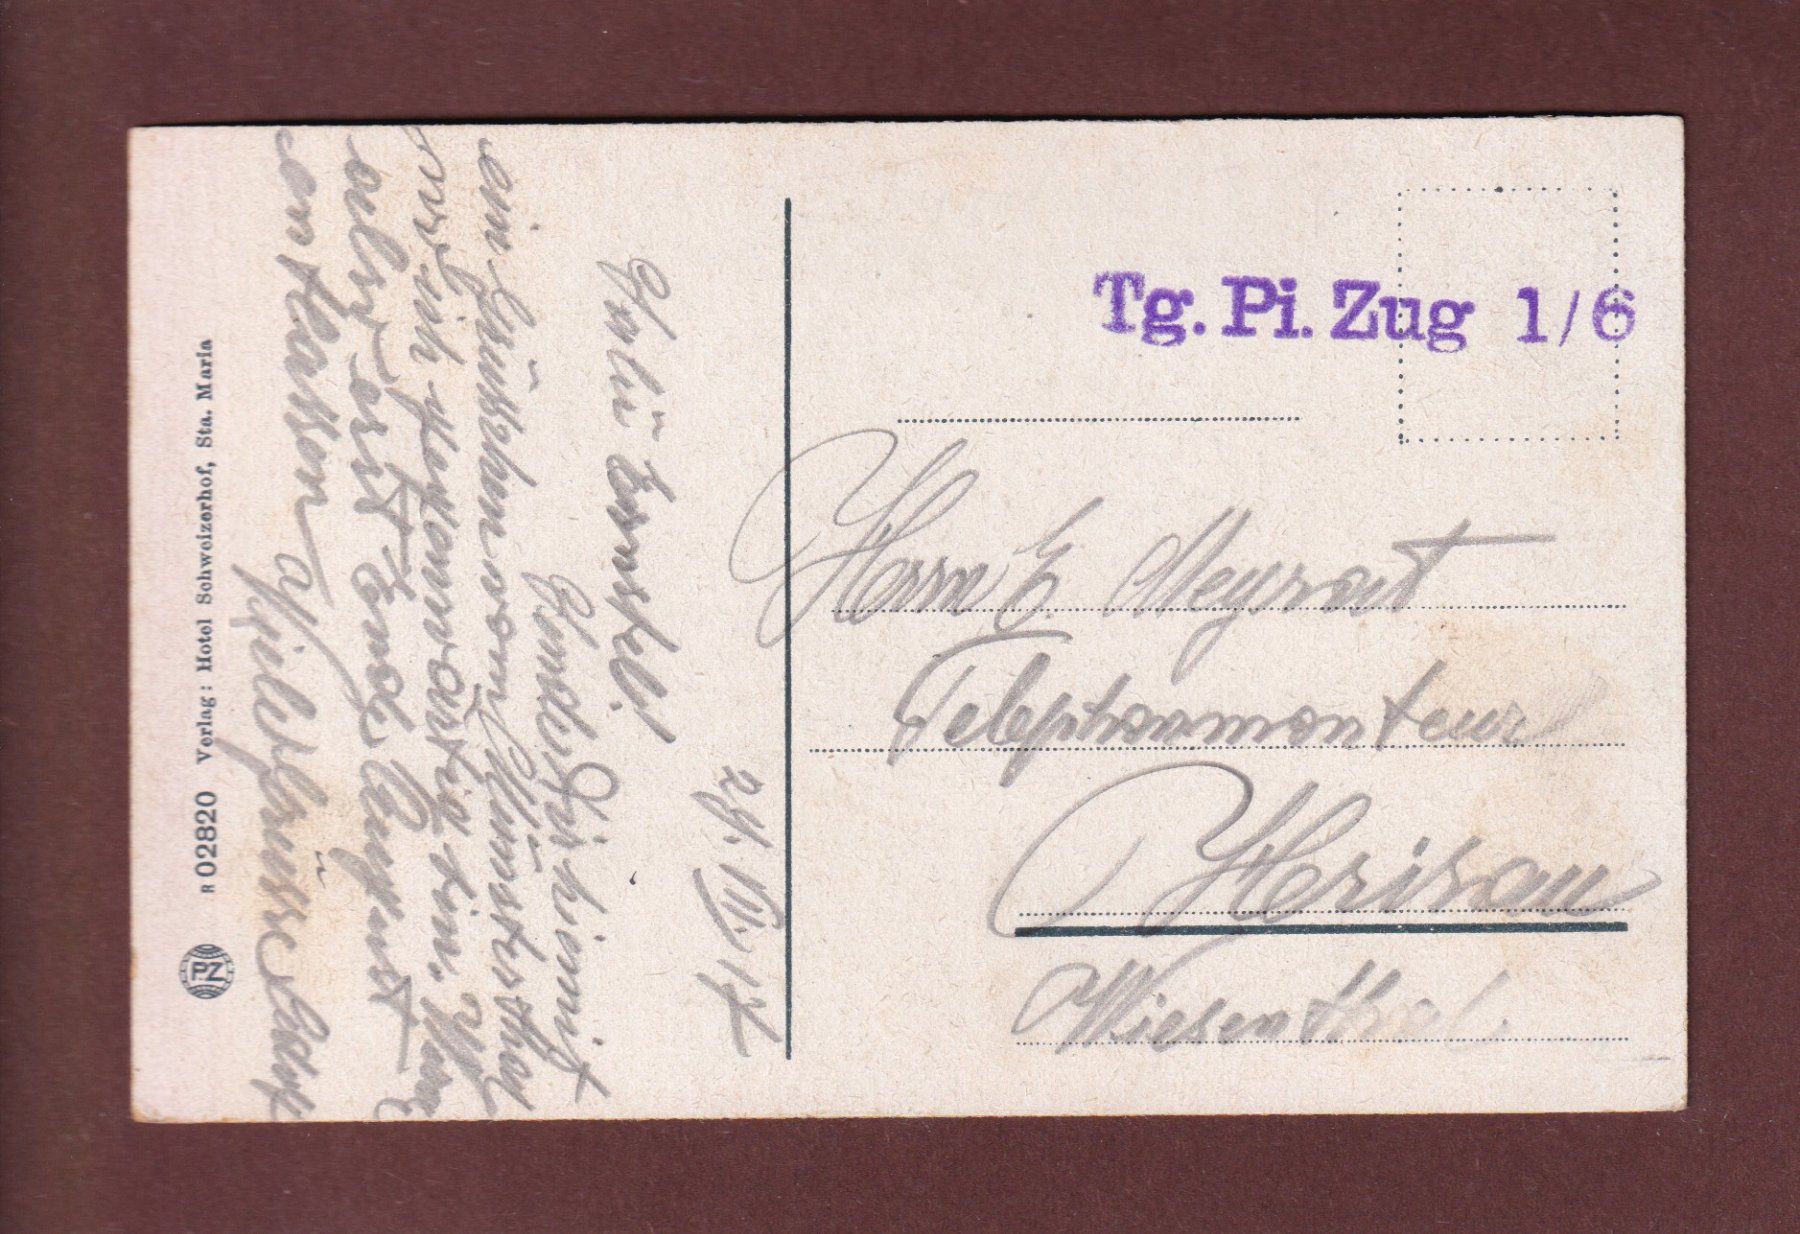 Tg. Pi. Zug 1/6
Herrn E. Meyrat
Telephonmonteur
Herisau
Wiesenthal
29. VIII. 17
Ernstel!
Sende Dir hiemit
ein Grüsschen vom Münsterthal
wo ich gegenwärtig bin.
erst Ende August
entlassen
Viele Grüsse
R 02820 Verlag: Hotel Schweizerhof, Sta. Maria
PZ